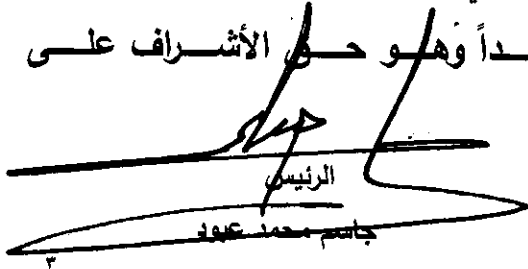 ـداً وهو حق الأشراف على
الرئيس
جاسم محمد عبود
٣